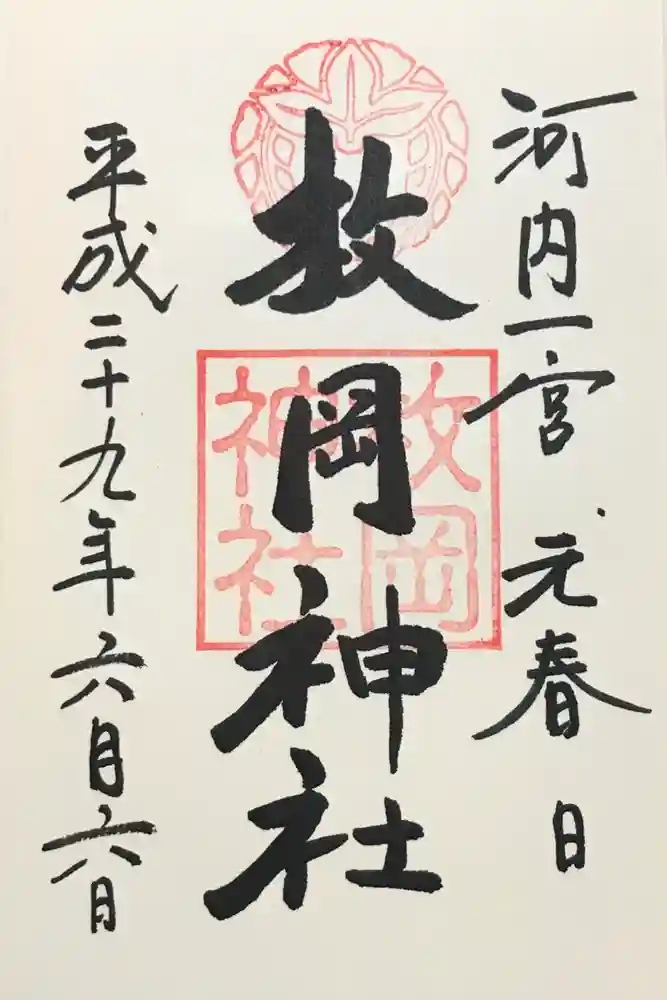 河内一宮 元春日
枚岡神社
枚岡
神社
平成二十九年六月六日